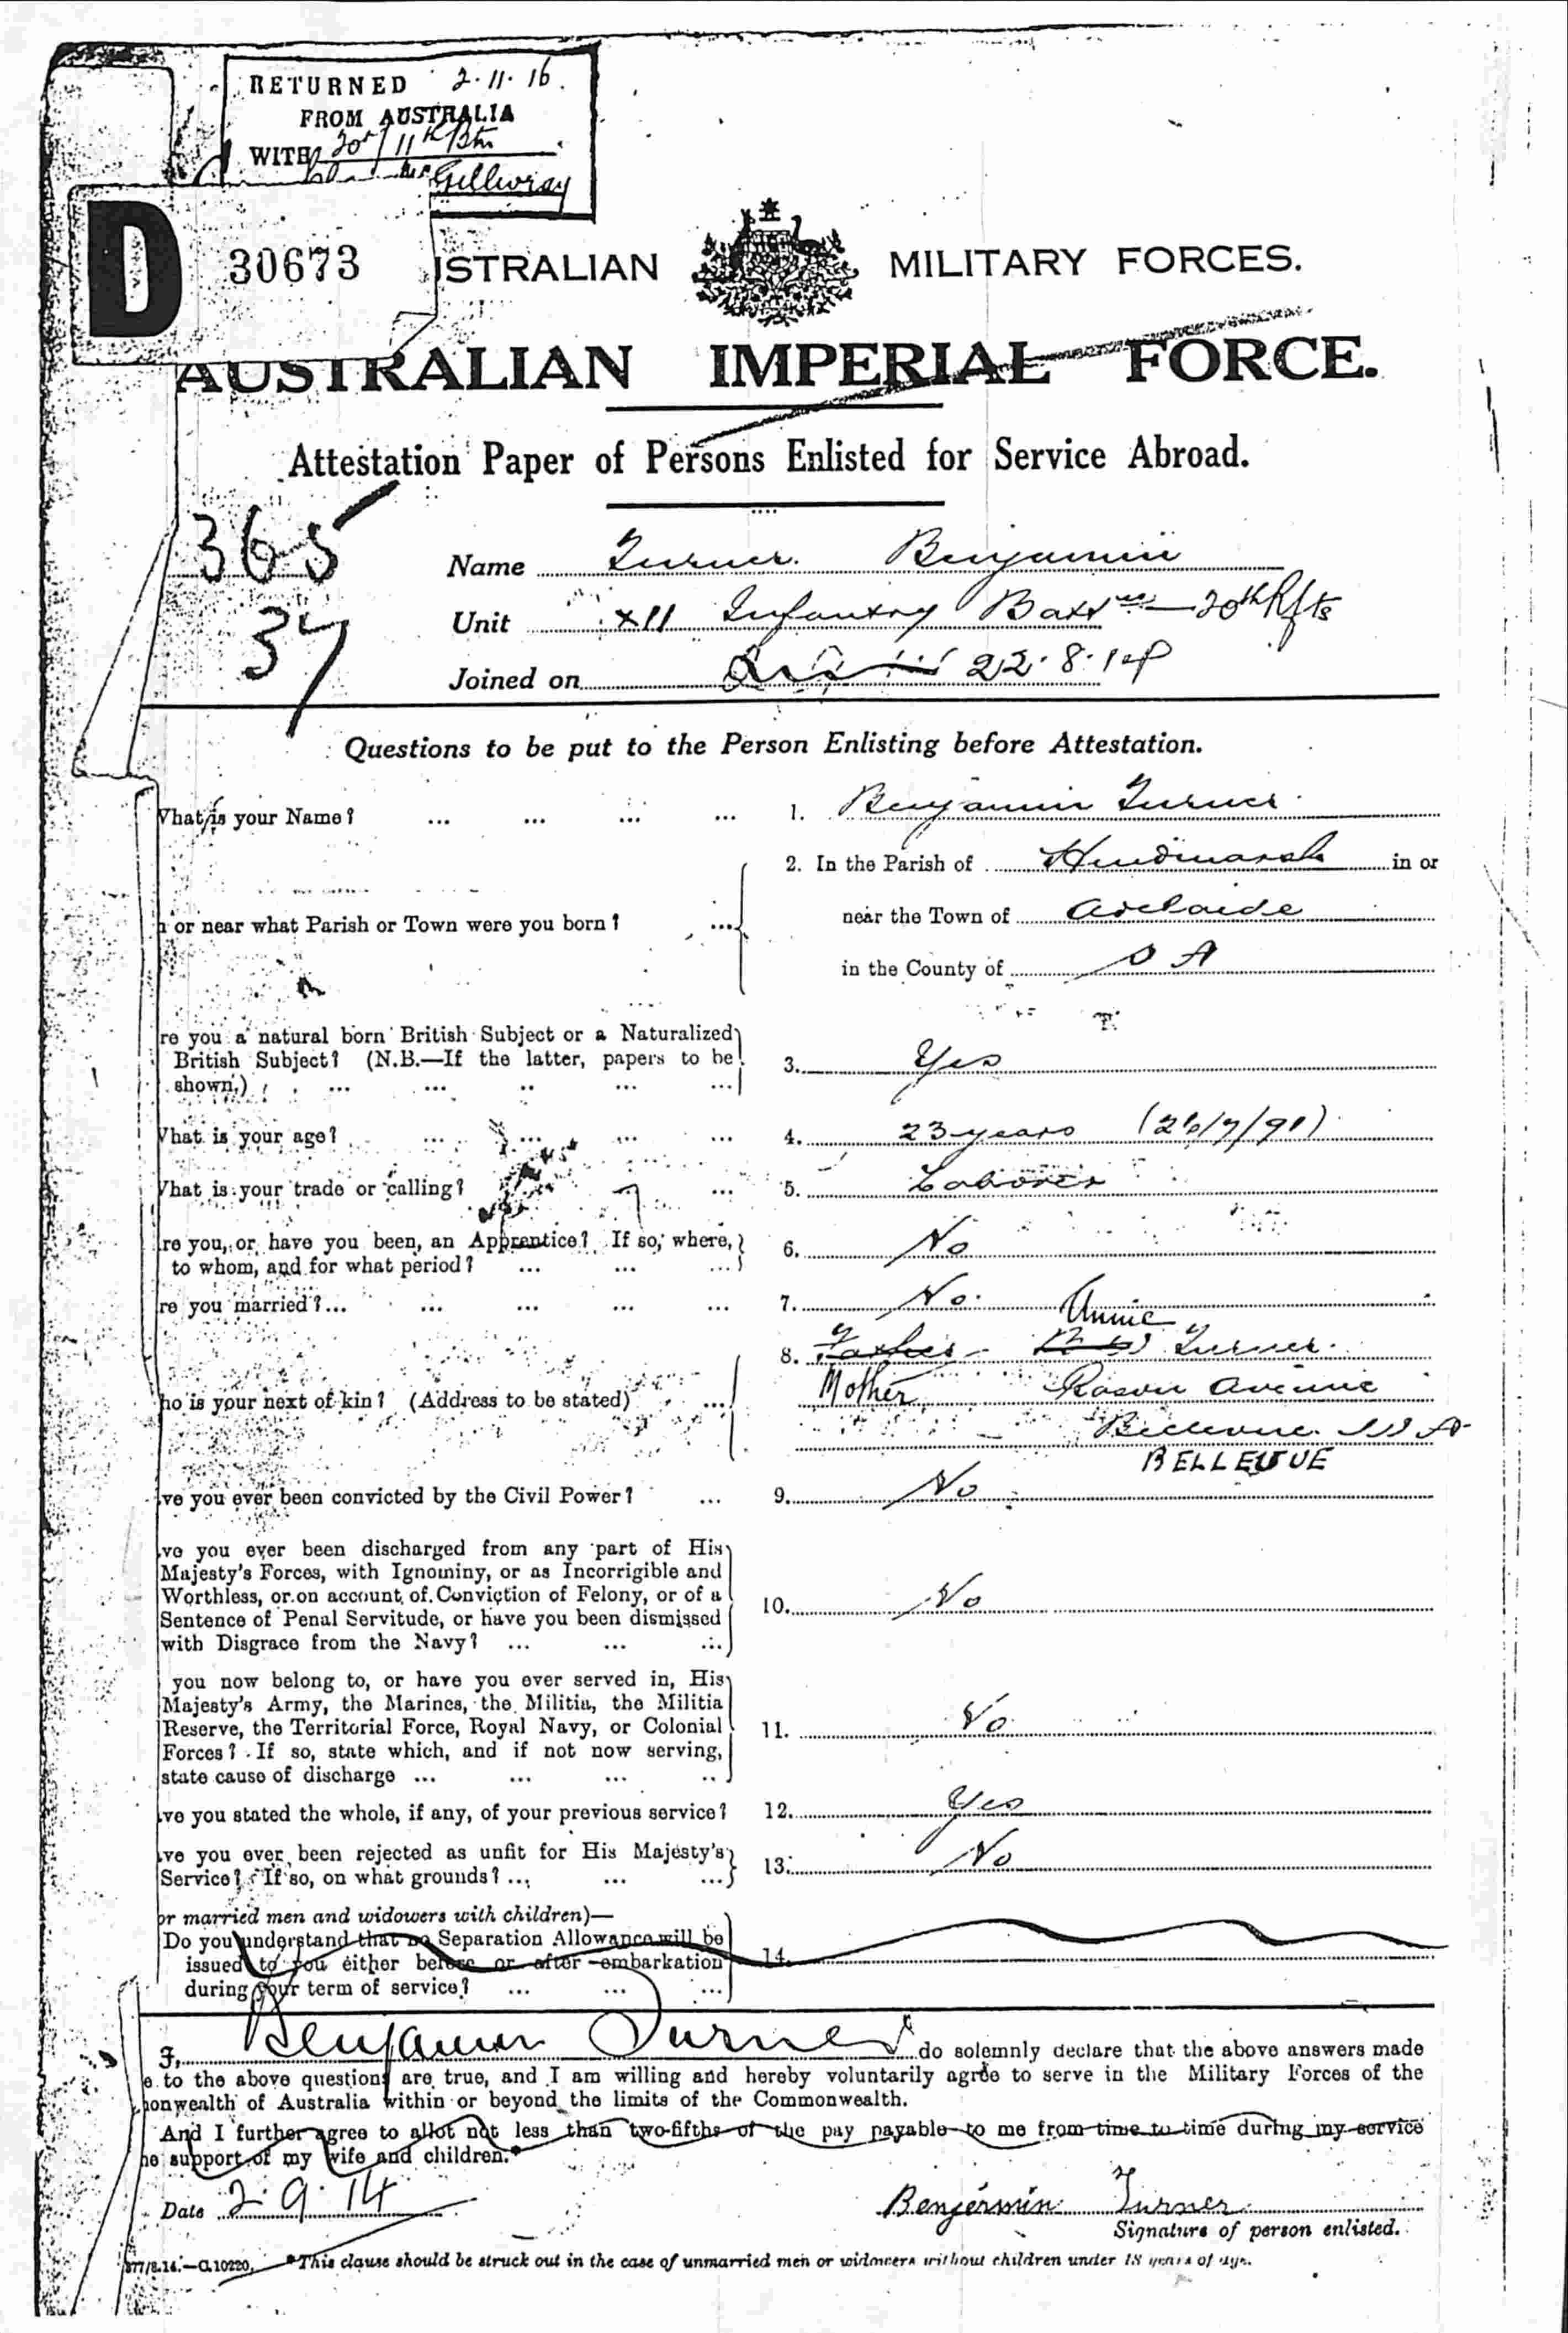 RETURNED 2.11.16.
FROM AUSTRALIA
WITH 20th/11th Btn
McGillivray
D 30673
USTRALIAN MILITARY FORCES.
AUSTRALIAN IMPERIAL FORCE.
Attestation Paper of Persons Enlisted for Service Abroad.
365
37
Name Turner. Benjamin
Unit XII Infantry Battn — 20th Rfts
Joined on 22.8.14
Questions to be put to the Person Enlisting before Attestation.
What is your Name? ... ... ... ... 1. Benjamin Turner
2. In the Parish of Hindmarsh in or
n or near what Parish or Town were you born? ... near the Town of Adelaide
in the County of S A
re you a natural born British Subject or a Naturalized
British Subject? (N.B.—If the latter, papers to be 3. Yes
shown.) ... ... .. ... ...
What is your age? ... ... ... ... 4. 23 years (26/7/91)
What is your trade or calling? ... 5. Laborer
re you, or have you been, an Apprentice? If so, where,
to whom, and for what period? ... ... ... 6. No
re you married? ... ... ... ... ... 7. No.
Annie
8. Father Turner.
Mother Rason Avenue
ho is your next of kin? (Address to be stated) ...
Bellevue. W A
BELLEVUE
ve you ever been convicted by the Civil Power? ... 9. No
ve you ever been discharged from any part of His
Majesty's Forces, with Ignominy, or as Incorrigible and
Worthless, or on account of Conviction of Felony, or of a 10. No
Sentence of Penal Servitude, or have you been dismissed
with Disgrace from the Navy? ... ... ...
you now belong to, or have you ever served in, His
Majesty's Army, the Marines, the Militia, the Militia
Reserve, the Territorial Force, Royal Navy, or Colonial 11. No
Forces? If so, state which, and if not now serving,
state cause of discharge ... ... ... ..
ve you stated the whole, if any, of your previous service? 12. Yes
ve you ever been rejected as unfit for His Majesty's
Service? If so, on what grounds? ... ... ... 13. No
or married men and widowers with children)—
Do you understand that no Separation Allowance will be
issued to you either before or after embarkation 14.
during your term of service? ... ... ...
I, Benjamin Turner do solemnly declare that the above answers made
e to the above questions are true, and I am willing and hereby voluntarily agree to serve in the Military Forces of the
monwealth of Australia within or beyond the limits of the Commonwealth.
And I further agree to allot not less than two-fifths of the pay payable to me from time to time during my service
he support of my wife and children.*
Date 2.9.14 Benjermin Turner
Signature of person enlisted.
377/8.14.—C.10220. *This clause should be struck out in the case of unmarried men or widowers without children under 18 years of age.